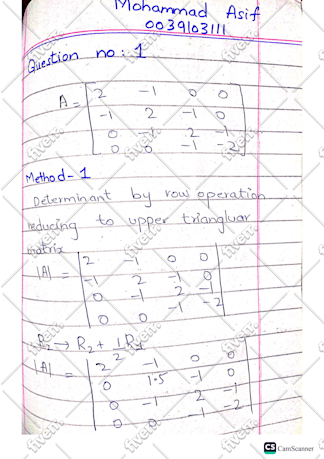 Mohammad Asif
0039103111
Question no: 1
A = [ 2 -1 0 0
-1 2 -1 0
0 -1 2 -1
0 0 -1 -2 ]
Method-1
Determinant by row operation
reducing to upper triangluar
matrix
|A| = | 2 -1 0 0
-1 2 -1 0
0 -1 2 -1
0 0 -1 -2 |
R2 → R2 + 1/2 R1
|A| = | 2 -1 0 0
0 1.5 -1 0
0 -1 2 -1
0 0 -1 -2 |
CS CamScanner